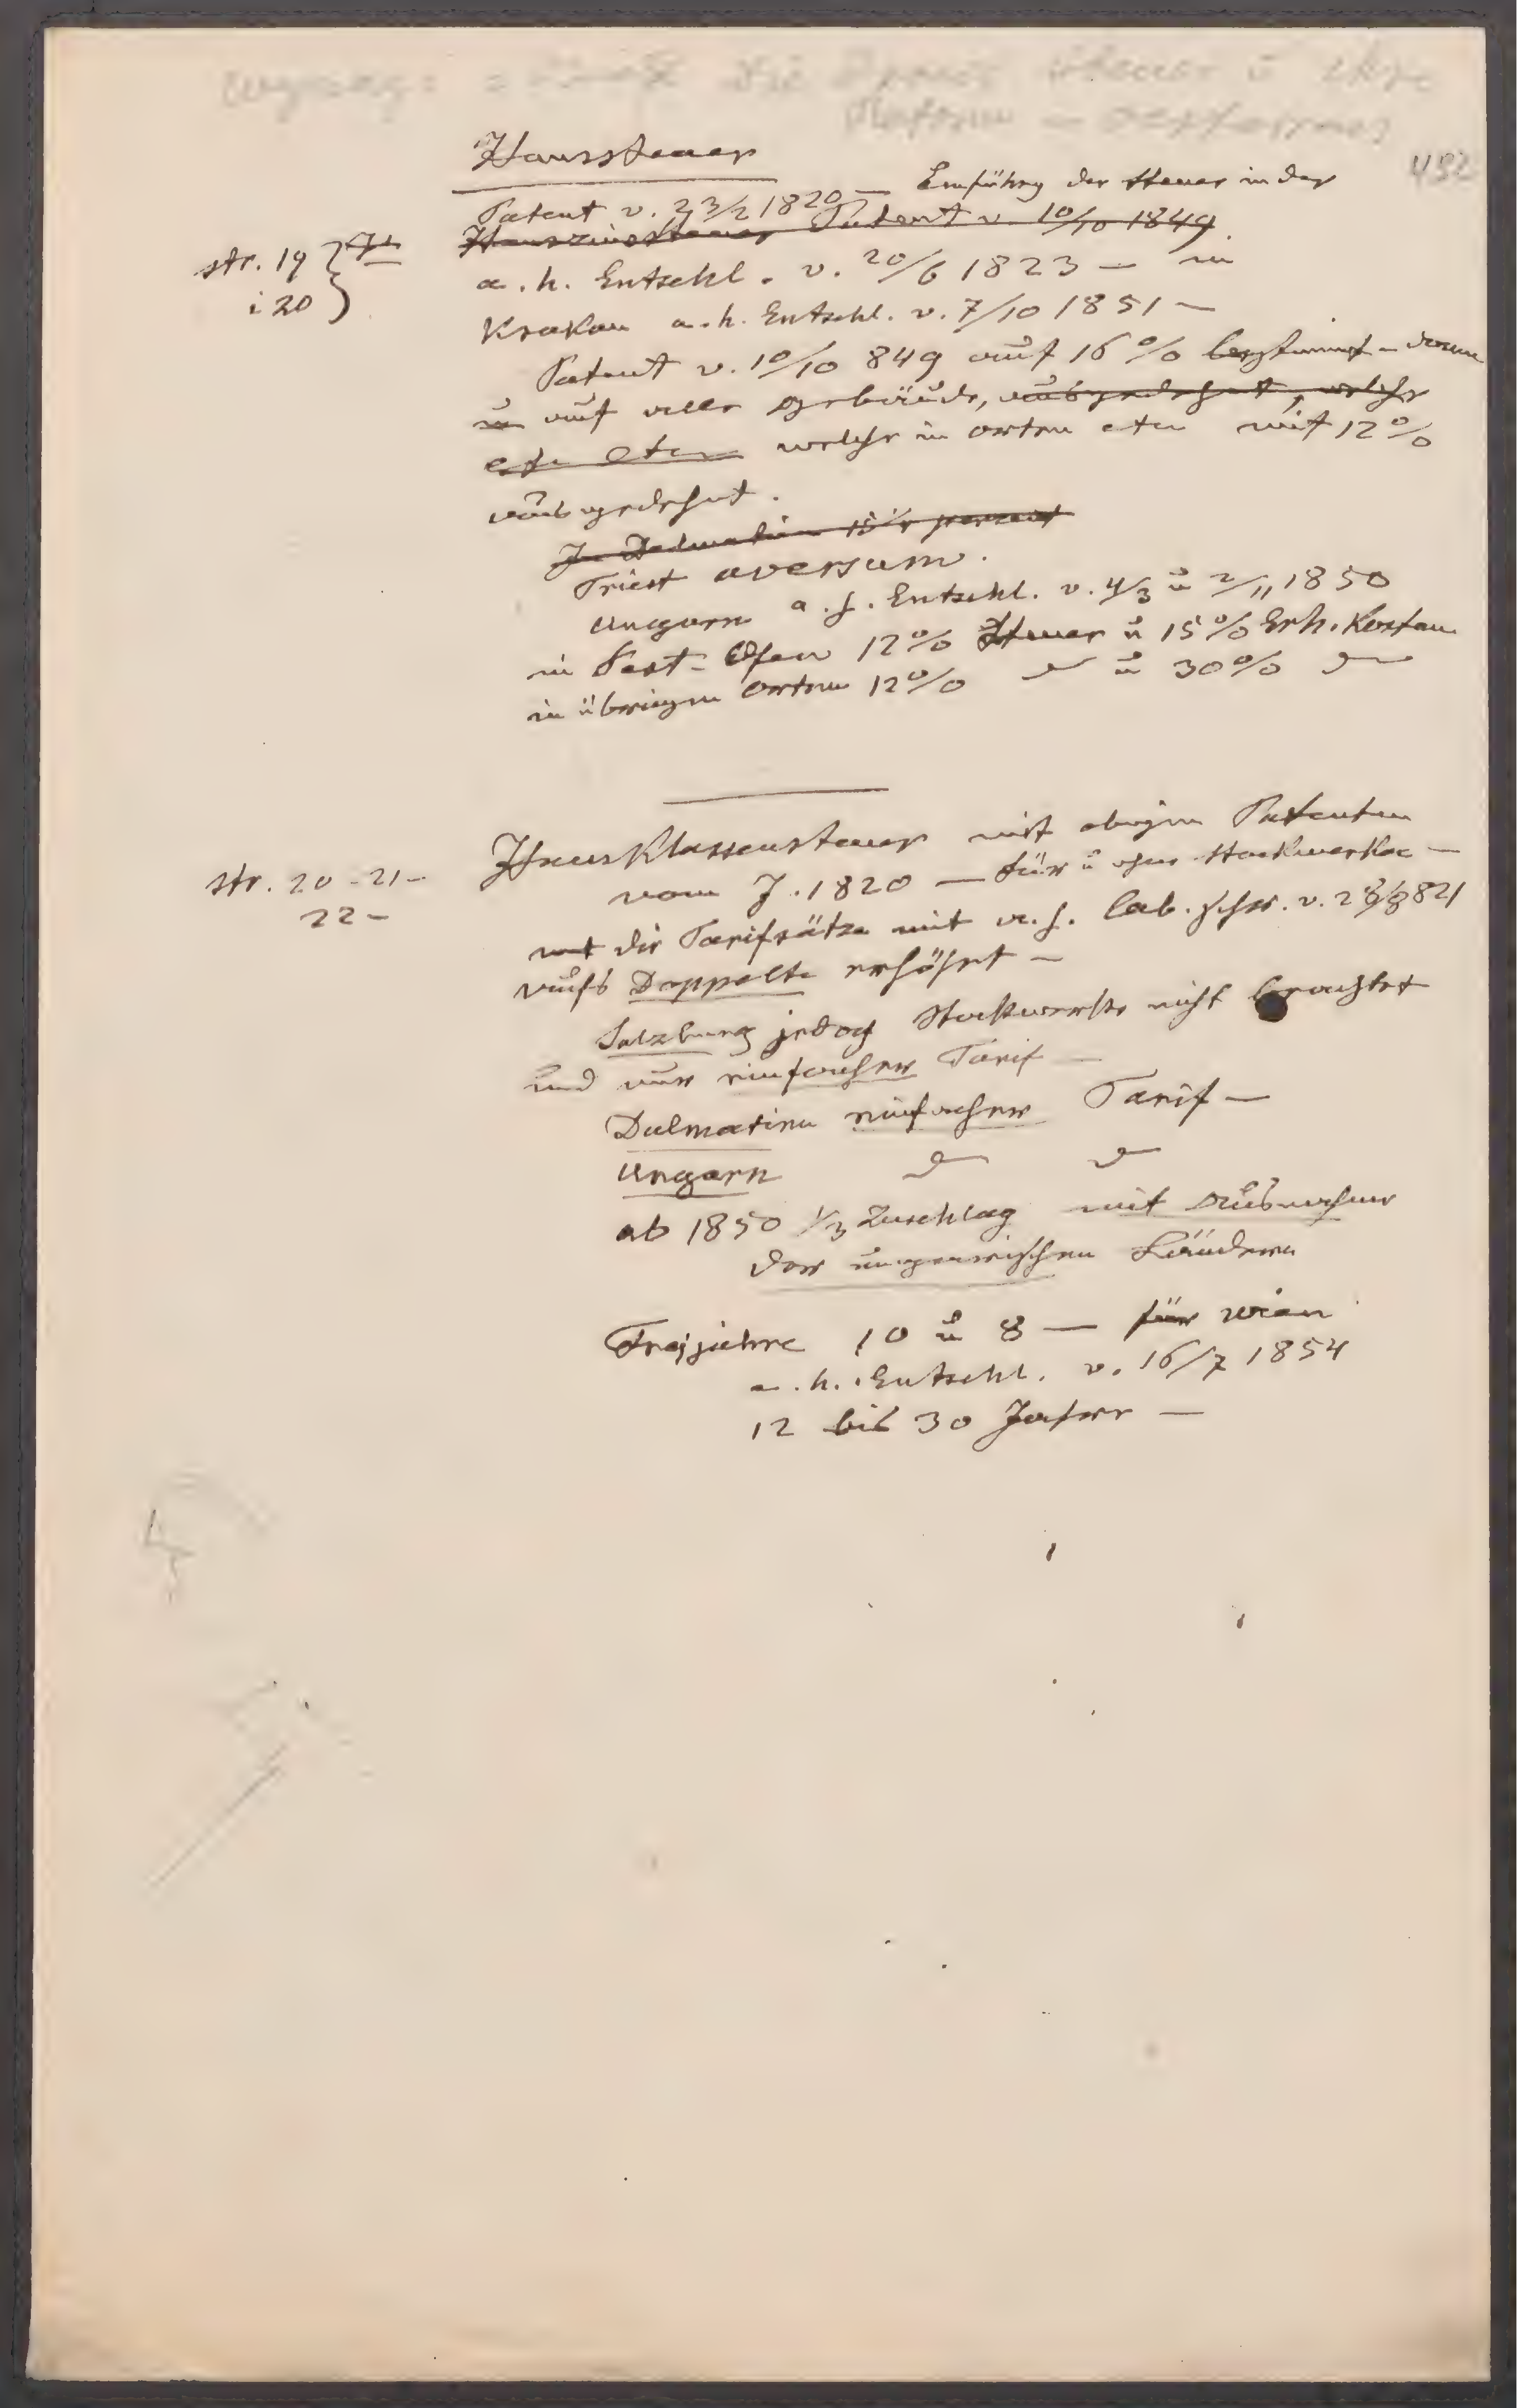 die Haus steuer u ihre
Reform
492
Haussteuer
Patent v. 23/2 1820 — Einführg der Steuer in der
Hauszinssteuer Patent v. 10/10 1849
str. 19
i 20
a. h. Entschl. v. 20/6 1823 — in
Krakau a. h. Entschl. v. 7/10 1851 —
Patent v. 10/10 849 auf 16% bestimmt – dann
u auf alle Gebäude, ausgedehnt, welche
etc etc welche in Orten etc mit 12%
ausgedehnt.
In Dalmatien 15 perzent
Triest aversum.
Ungarn a. h. Entschl. v. 4/3 u 2/11 1850
in Pest-Ofen 12% Steuer u 15% Erh. Kosten
in übrigen Orten 12% u 30%
str. 20-21-
22-
Hausklassensteuer mit obigen Patenten
vom J. 1820 — für u ohne Stockwerke —
mit die Tarifsätze mit a. h. Cab. Schr. v. 821
aufs Doppelte erhöht —
Salzburg jedoch Stockwerke nicht beachtet
und nur einfacher Tarif —
Dalmatien einfacher Tarif —
Ungarn
ab 1850 1/3 Zuschlag mit Ausnahme
der ungarischen Ländern
Freijahre 10 u 8 — für Wien
a. h. Entschl. v. 16/7 1854
12 bis 30 Jahre —